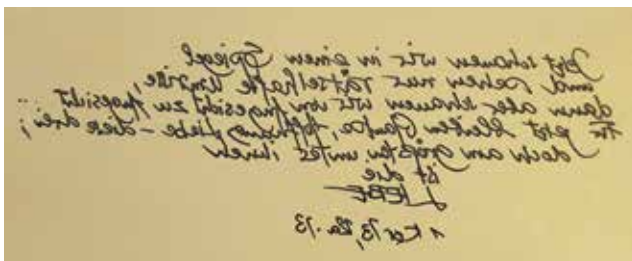 Jetzt schauen wir in einen Spiegel
und sehen nur rätselhafte Umrisse,
dann aber schauen wir von Angesicht zu Angesicht...
Für jetzt bleiben Glaube, Hoffnung, Liebe – diese drei;
doch am größten unter ihnen
ist die
LIEBE
1 Kor 13, 12a.13